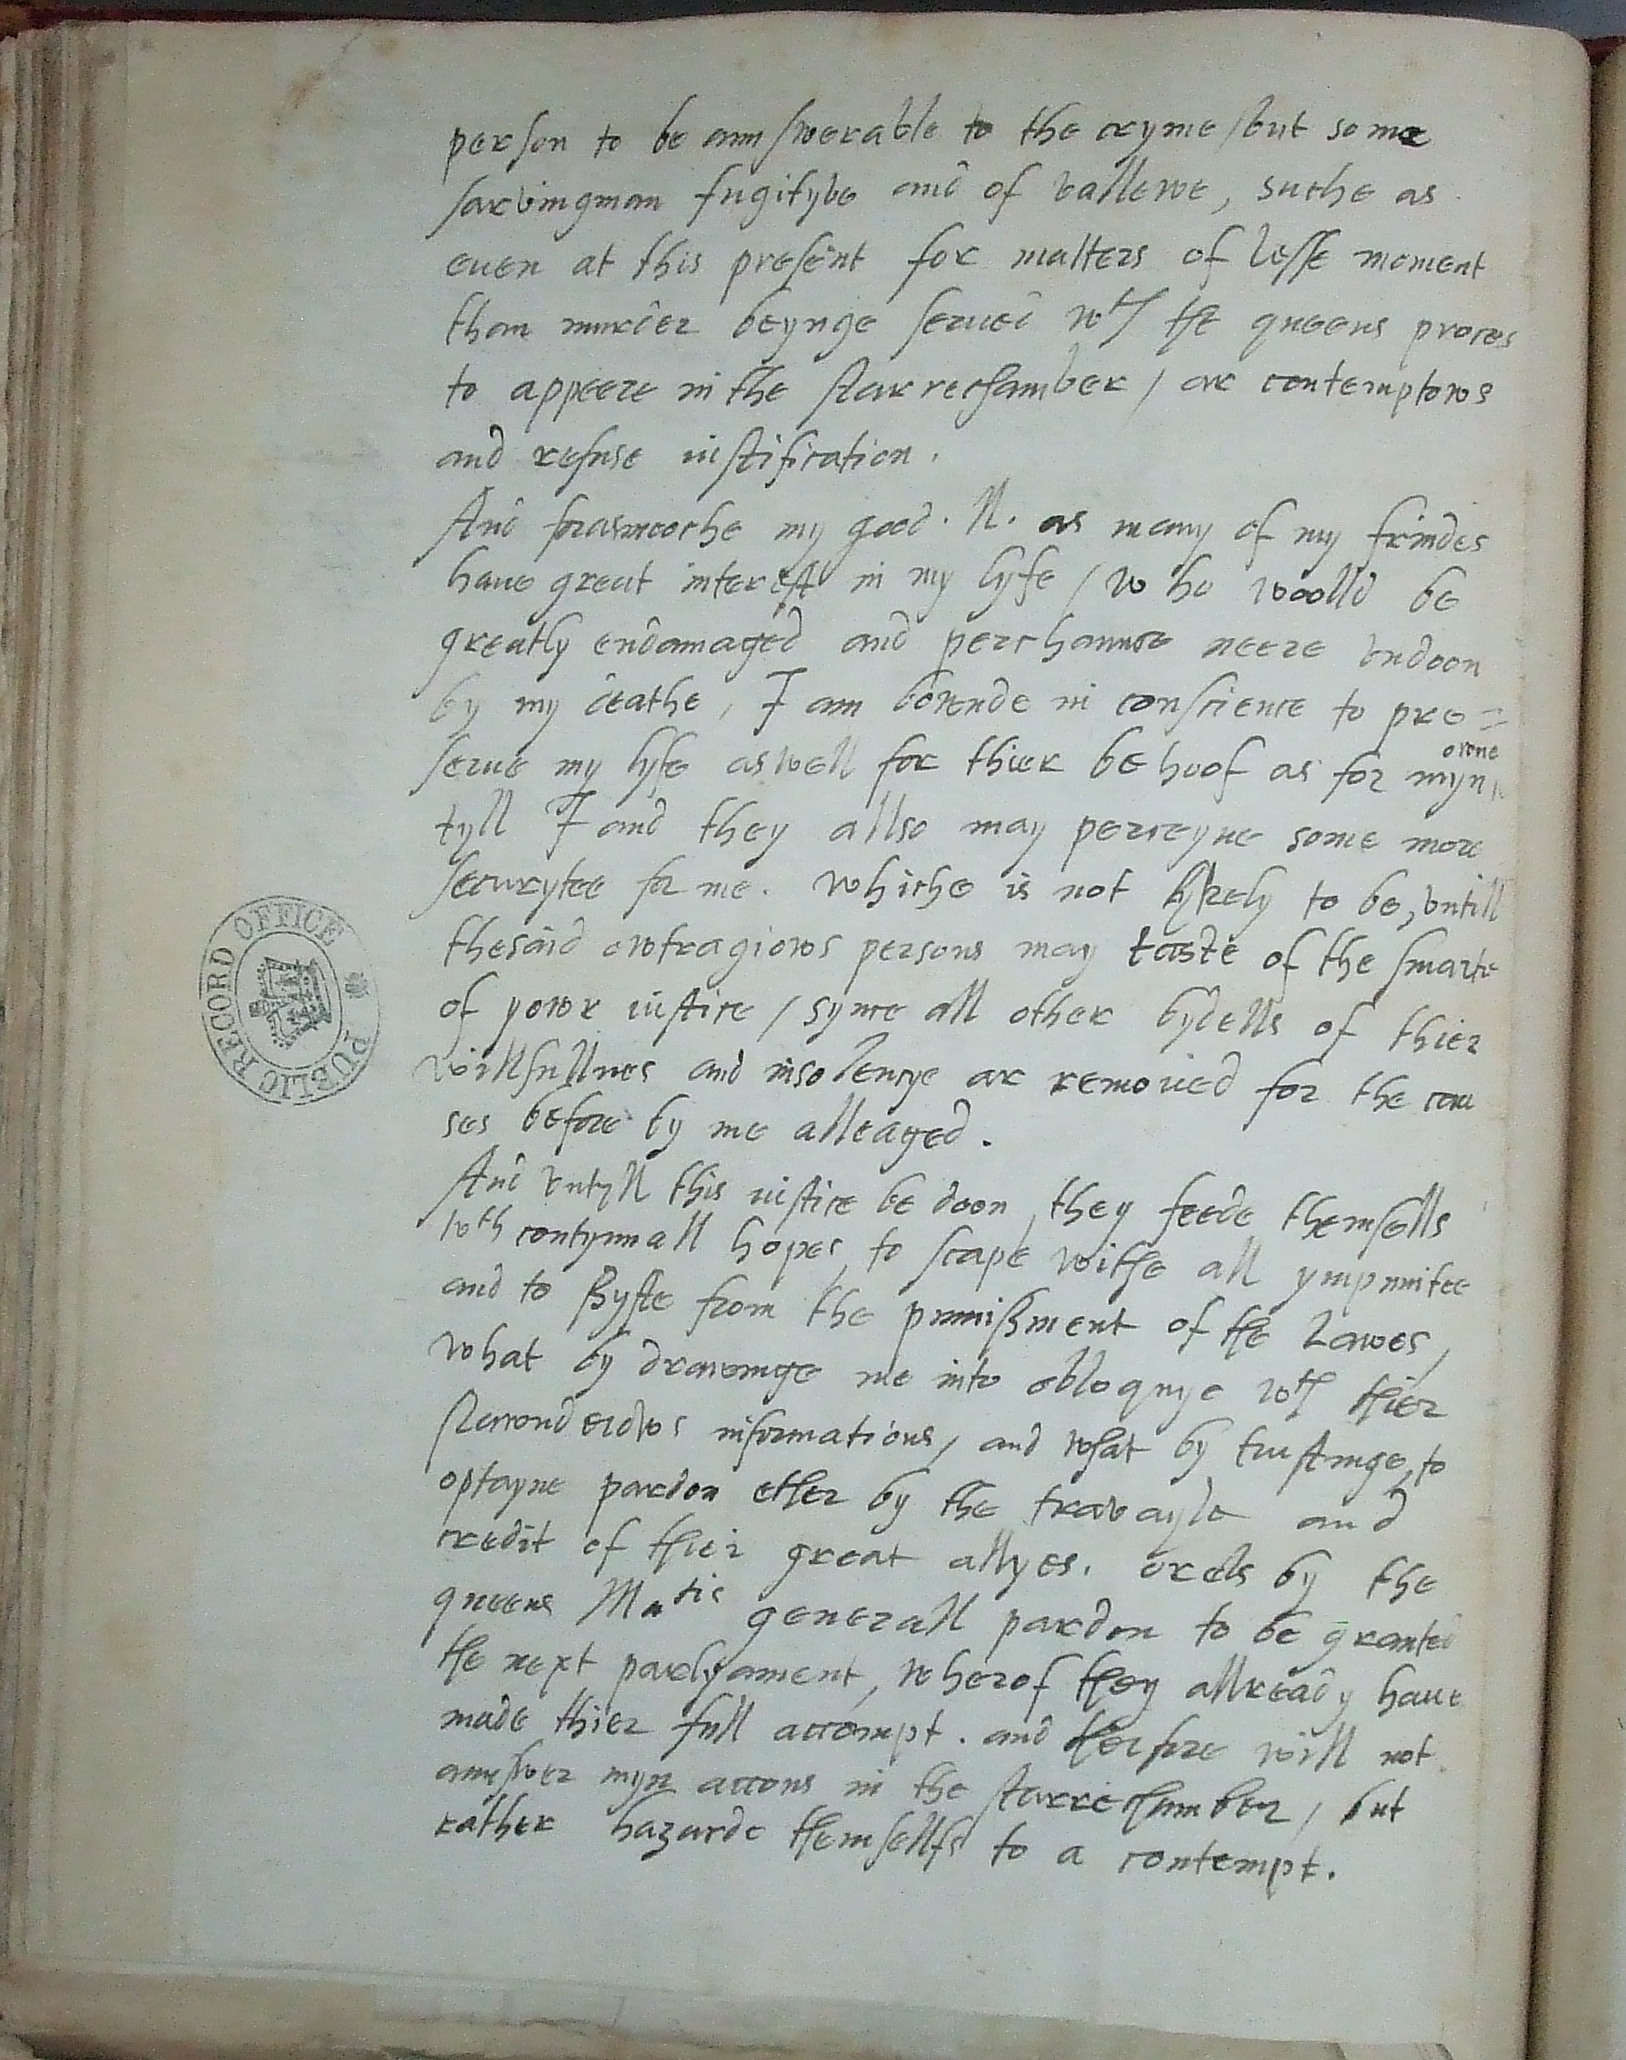 person to be annswerable to the cryme / but some
sarvingman fugityve and of vallewe, suche as
euen at this present for matters of lesse moment
than murder beynge serued wth the queens proces
to appeere in the starrechamber / ar contemptows
and refuse iustification.
And forasmoche my good . ll. as many of my frindes
haue great interest in my lyfe / who woolld be
greatly endamaged and perchannce neere vndoon
by my deathe, I am bownde in conscience to pre=
serue my lyfe aswell for thier behoof as for myn owne
tyll I and they allso may perceyue some more
securytee for me. whiche is not lykely to be, vntill
thesaid owtragiows persons may taste of the smarte
of yowr iustice / synce all other bydells of thier
willfullnes and insolencye ar remoued for the cau
ses before by me alleaged.
And vntyll this iustice be doon, they feede themsells
wth contynuall hopes, to scape withe all ympunitee
and to shyfte from the punnishment of the Lawes,
what by drawinge me into obloquye wth thier
slawnderows informations, and what by trustinge, to
optayne pardon ether by the travayle and
credit of thier great allyes. orels by the
queens Matis generall pardon to be granted
the next parlyament, wherof they allready haue
made thier full accompt. and therfore will not
annswer myn accons in the starrechamber, but
rather hazarde themsellfs to a contempt.
PUBLIC RECORD OFFICE